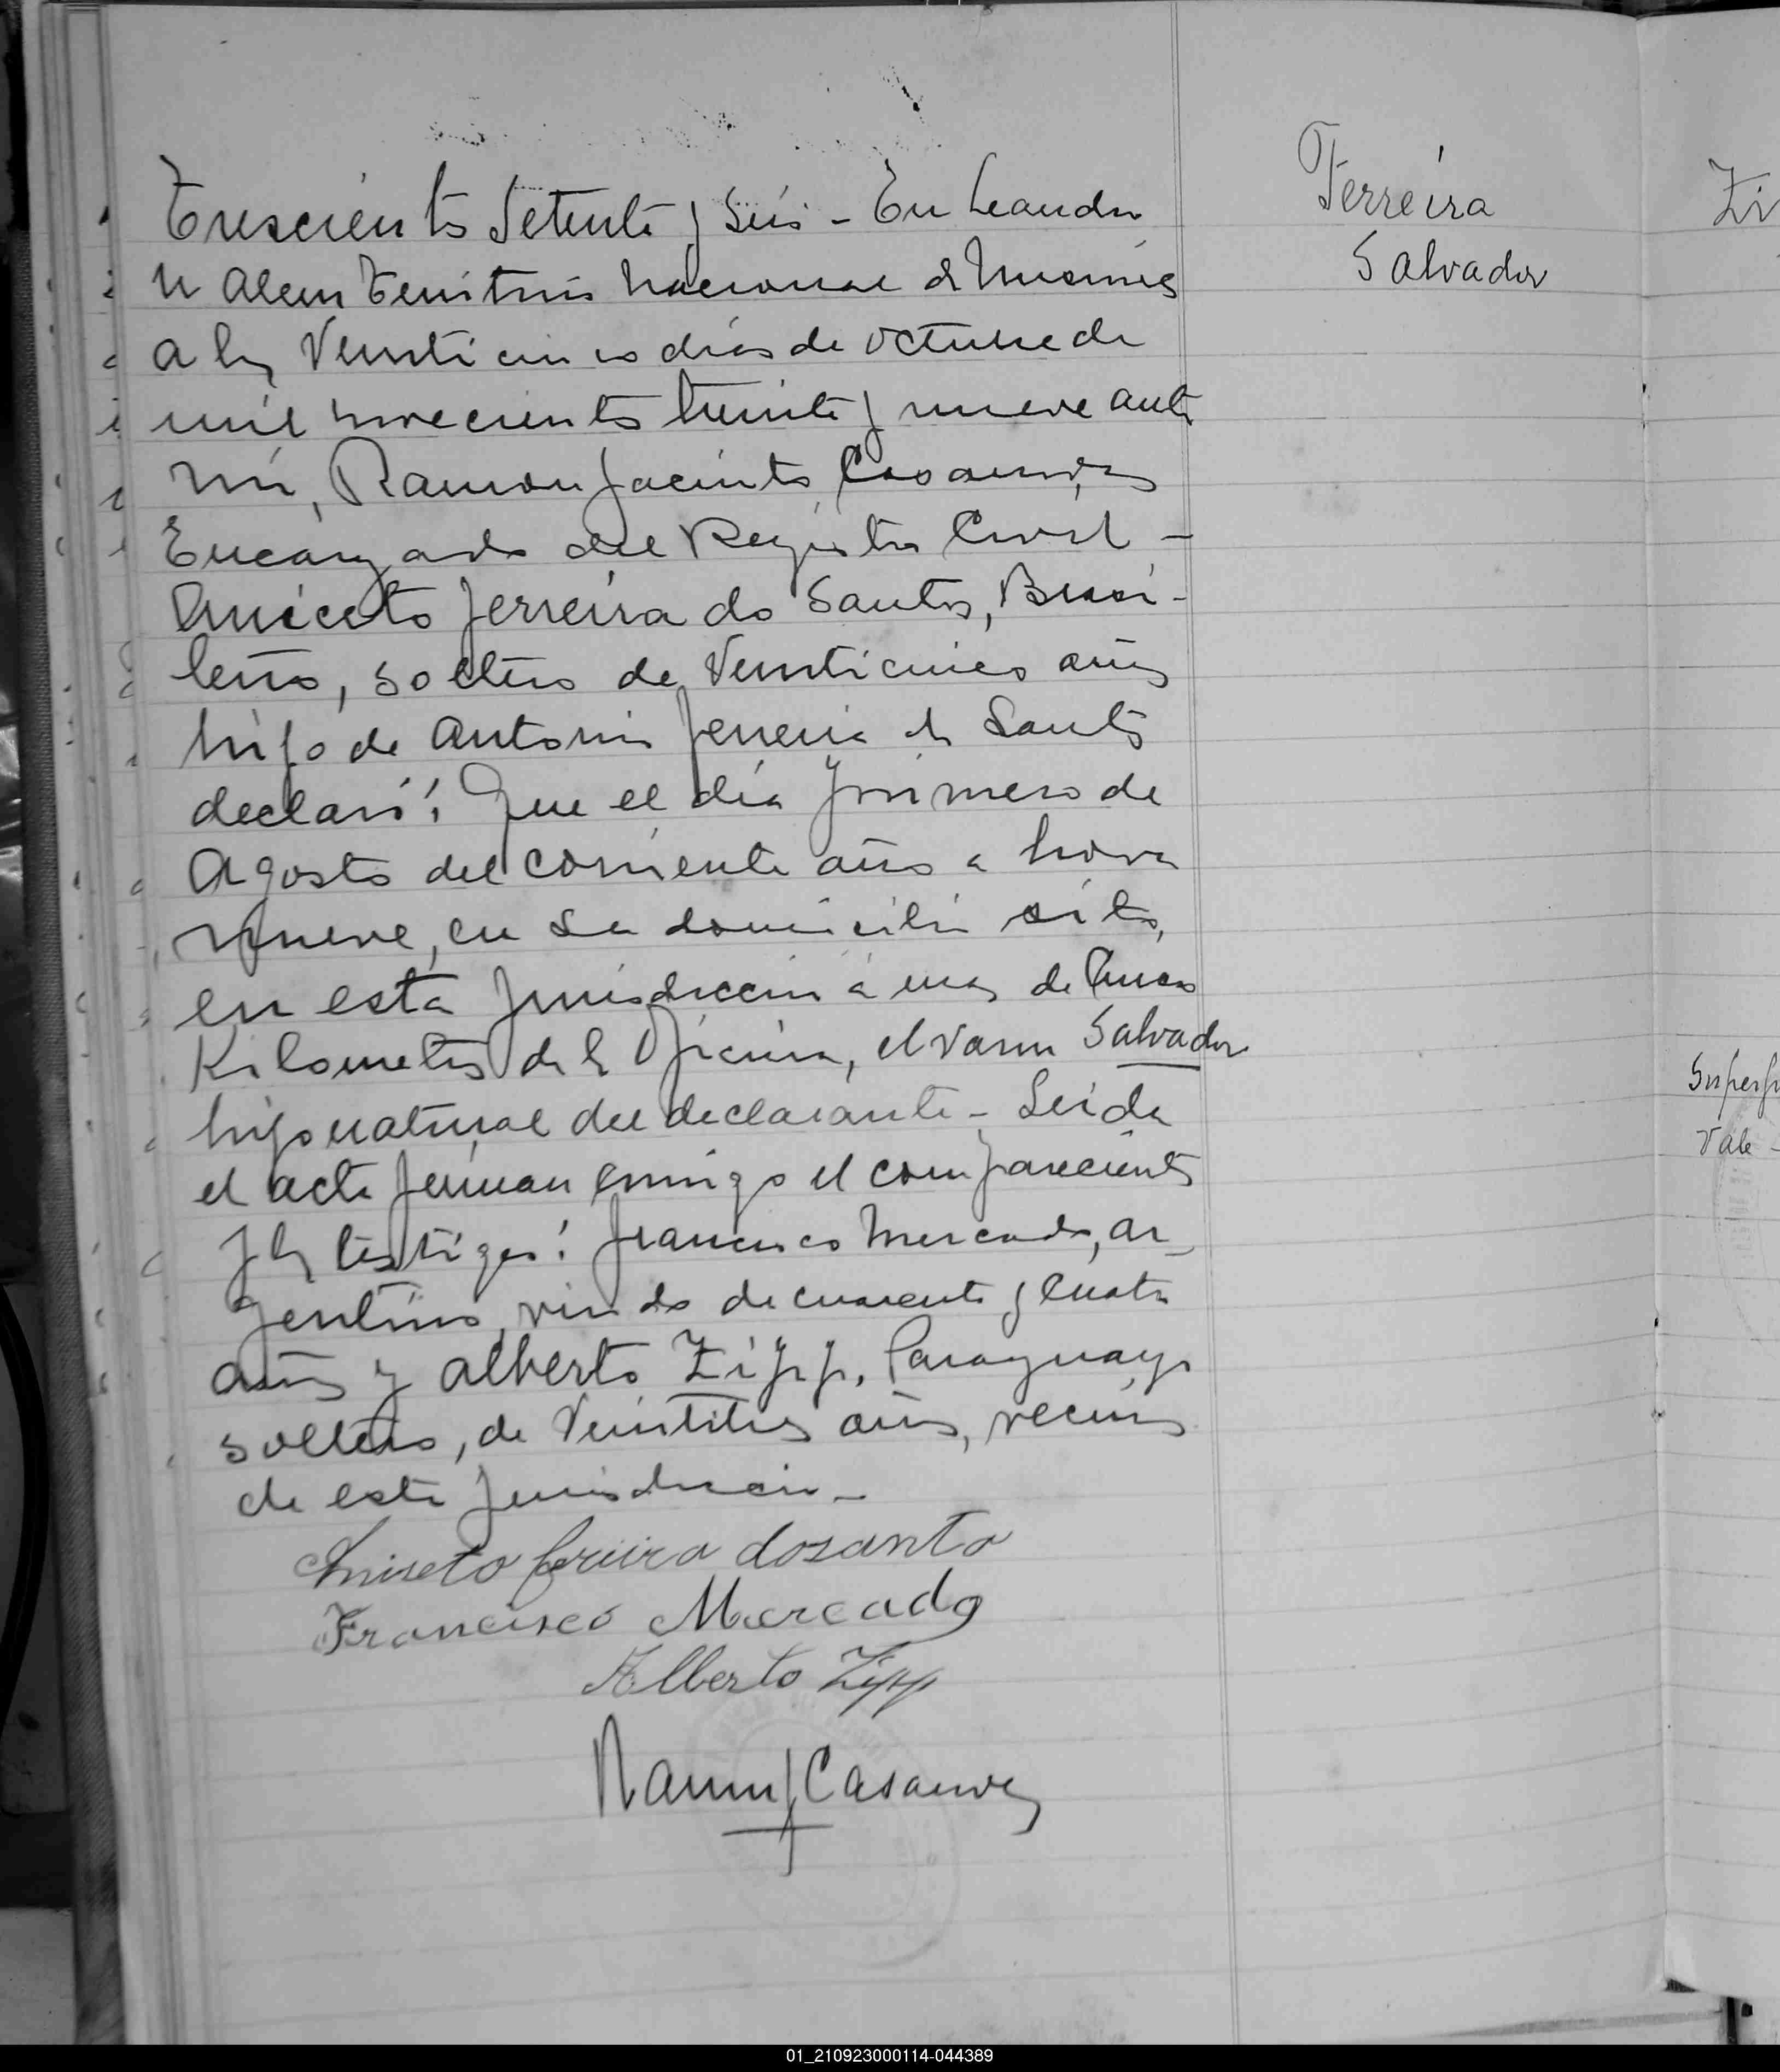 Trescientos Setenta y Seis - En Leandro
N Alem Territorio Nacional de Misiones
a los Veinticinco dias de octubre de
mil novecientos treinta y nueve ante
mi, Ramon Jacinto Casanovas
Encargado del Registro Civil -
Aniceto Ferreira do Santos, Brasi-
leño, soltero de Veinticinco años
hijo de Antonio Ferreira do Santos
declaró: Que el día primero de
Agosto del corriente año a hora
nueve, en su domicilio sito,
en esta jurisdiccion a mas de cinco
Kilometros de la Oficina, el varon Salvador
hijo natural del declarante - Leida
el acta firman conmigo el compareciente
y los testigos: Francisco Mercado, ar-
gentino, viudo de cuarenta y cuatro
años y Alberto Zipp, Paraguayo
soltero, de Veintitres años, vecinos
de esta jurisdiccion -
Aniseto ferreira dosanto
Francisco Mercado
Alberto Zipp
Ramon J Casanovas
Ferreira
Salvador
Zi
Superfi
Vale -
01_210923000114-044389